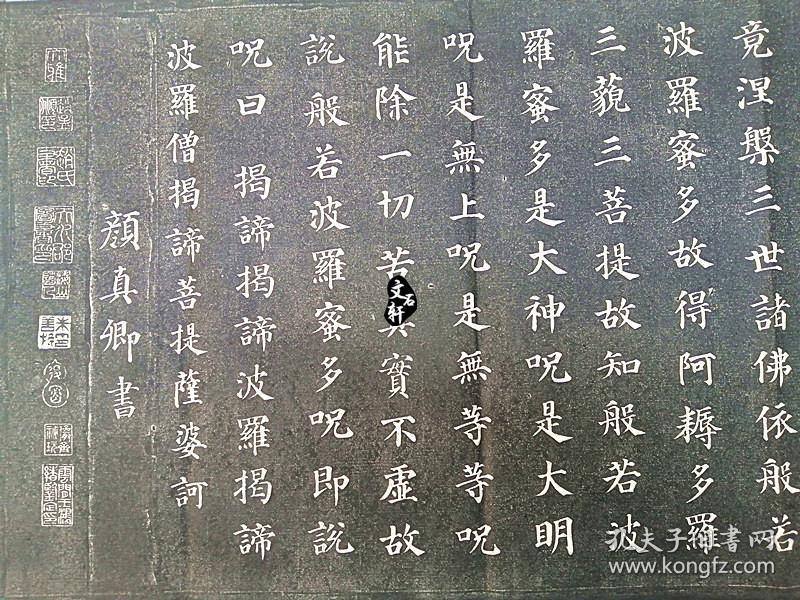 竟涅槃三世諸佛依般若
波羅蜜多故得阿耨多羅
三藐三菩提故知般若波
羅蜜多是大神呪是大明
呪是無上呪是無等等呪
能除一切苦真實不虛故
說般若波羅蜜多呪即說
呪曰 揭諦揭諦波羅揭諦
波羅僧揭諦菩提薩婆訶
顏真卿書
文石軒
孔夫子旧书网
www.kongfz.com